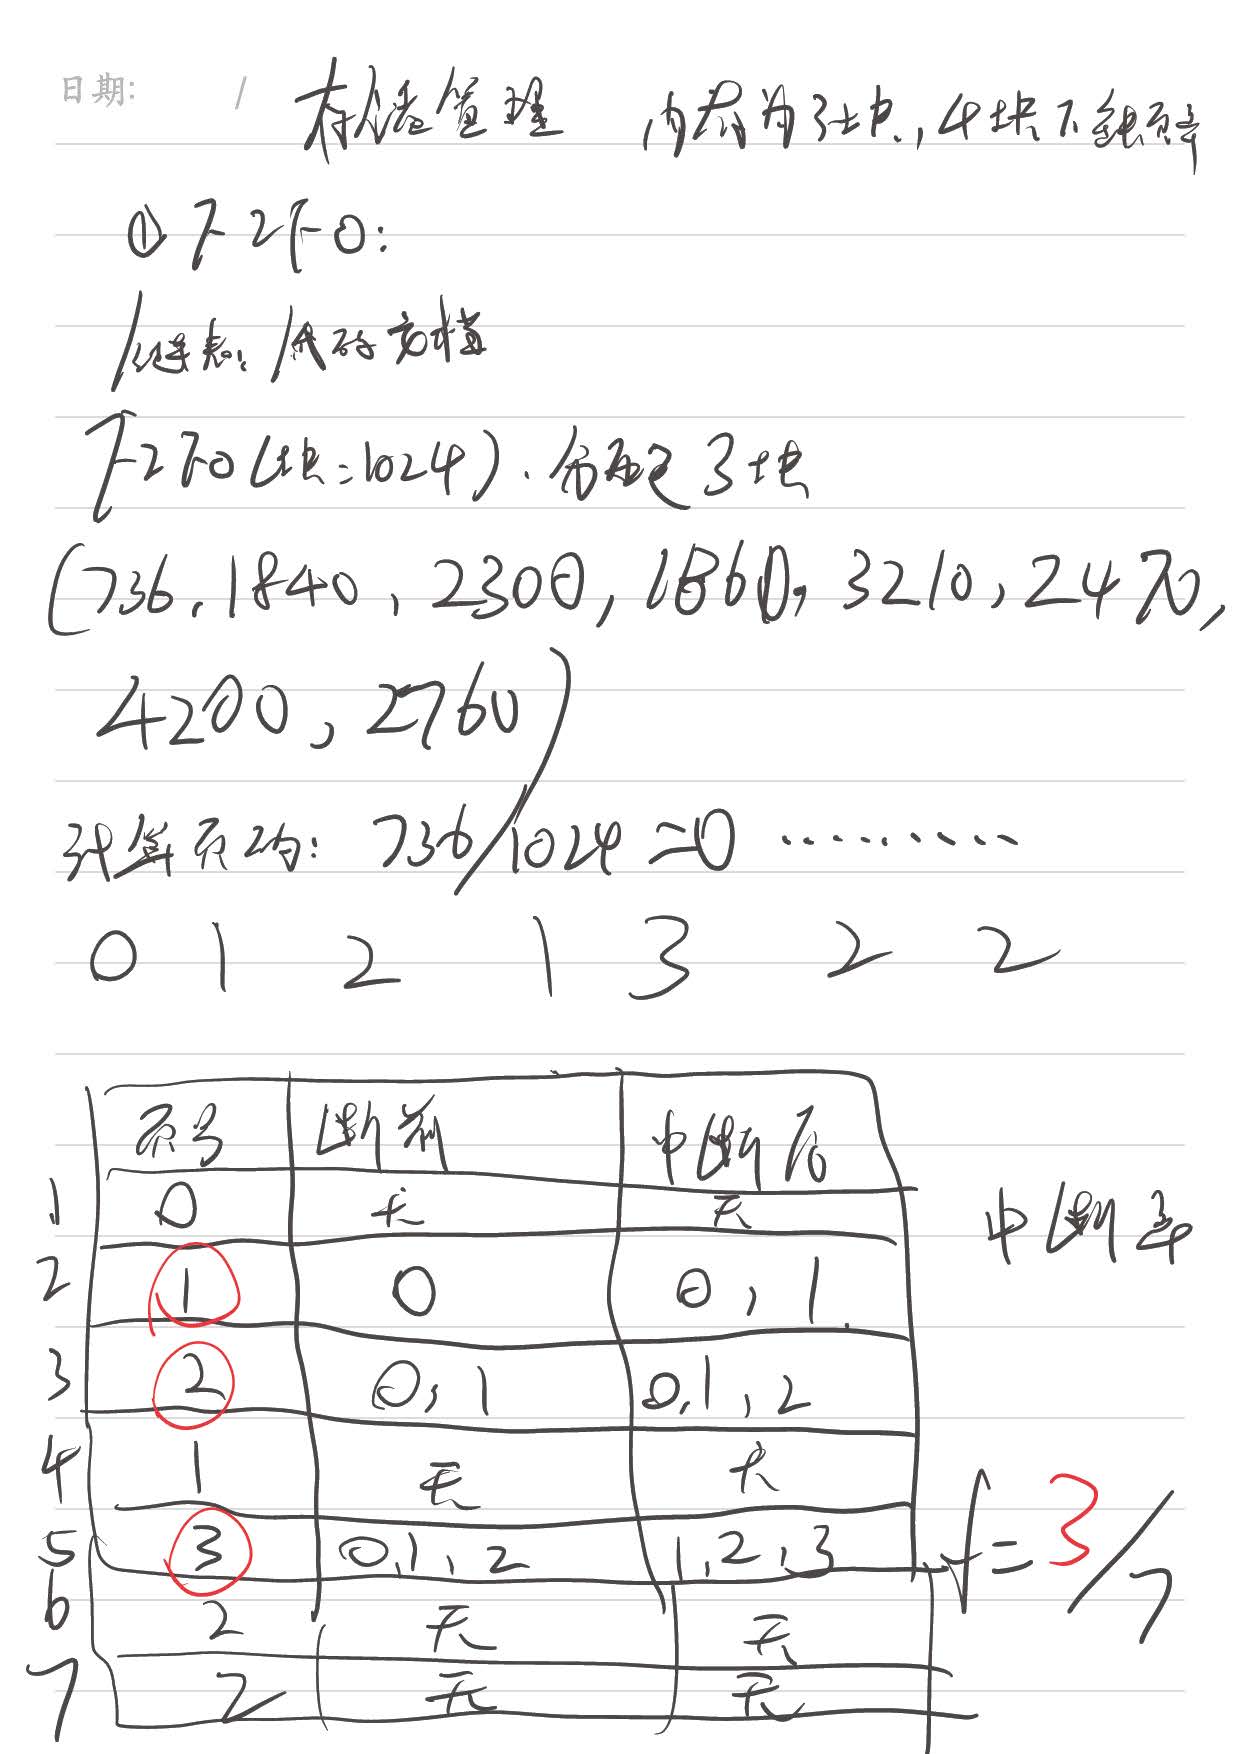 日期: /
存储管理 内存为3块,4块下缺页率
① FIFO:
链表: 代码文档
FIFO(块=1024).分配3块
(736,1840,2300,1860,3210,2470,
4200,2760)
计算页均: 736/1024=0 ………
0 1 2 1 3 2 2
页号 断前 中断后
1 0 无 无
中断率
2 1 0 0,1
3 2 0,1 0,1,2
4 1 无 无
5 3 0,1,2 1,2,3
f=3/7
6 2 无 无
7 2 无 无